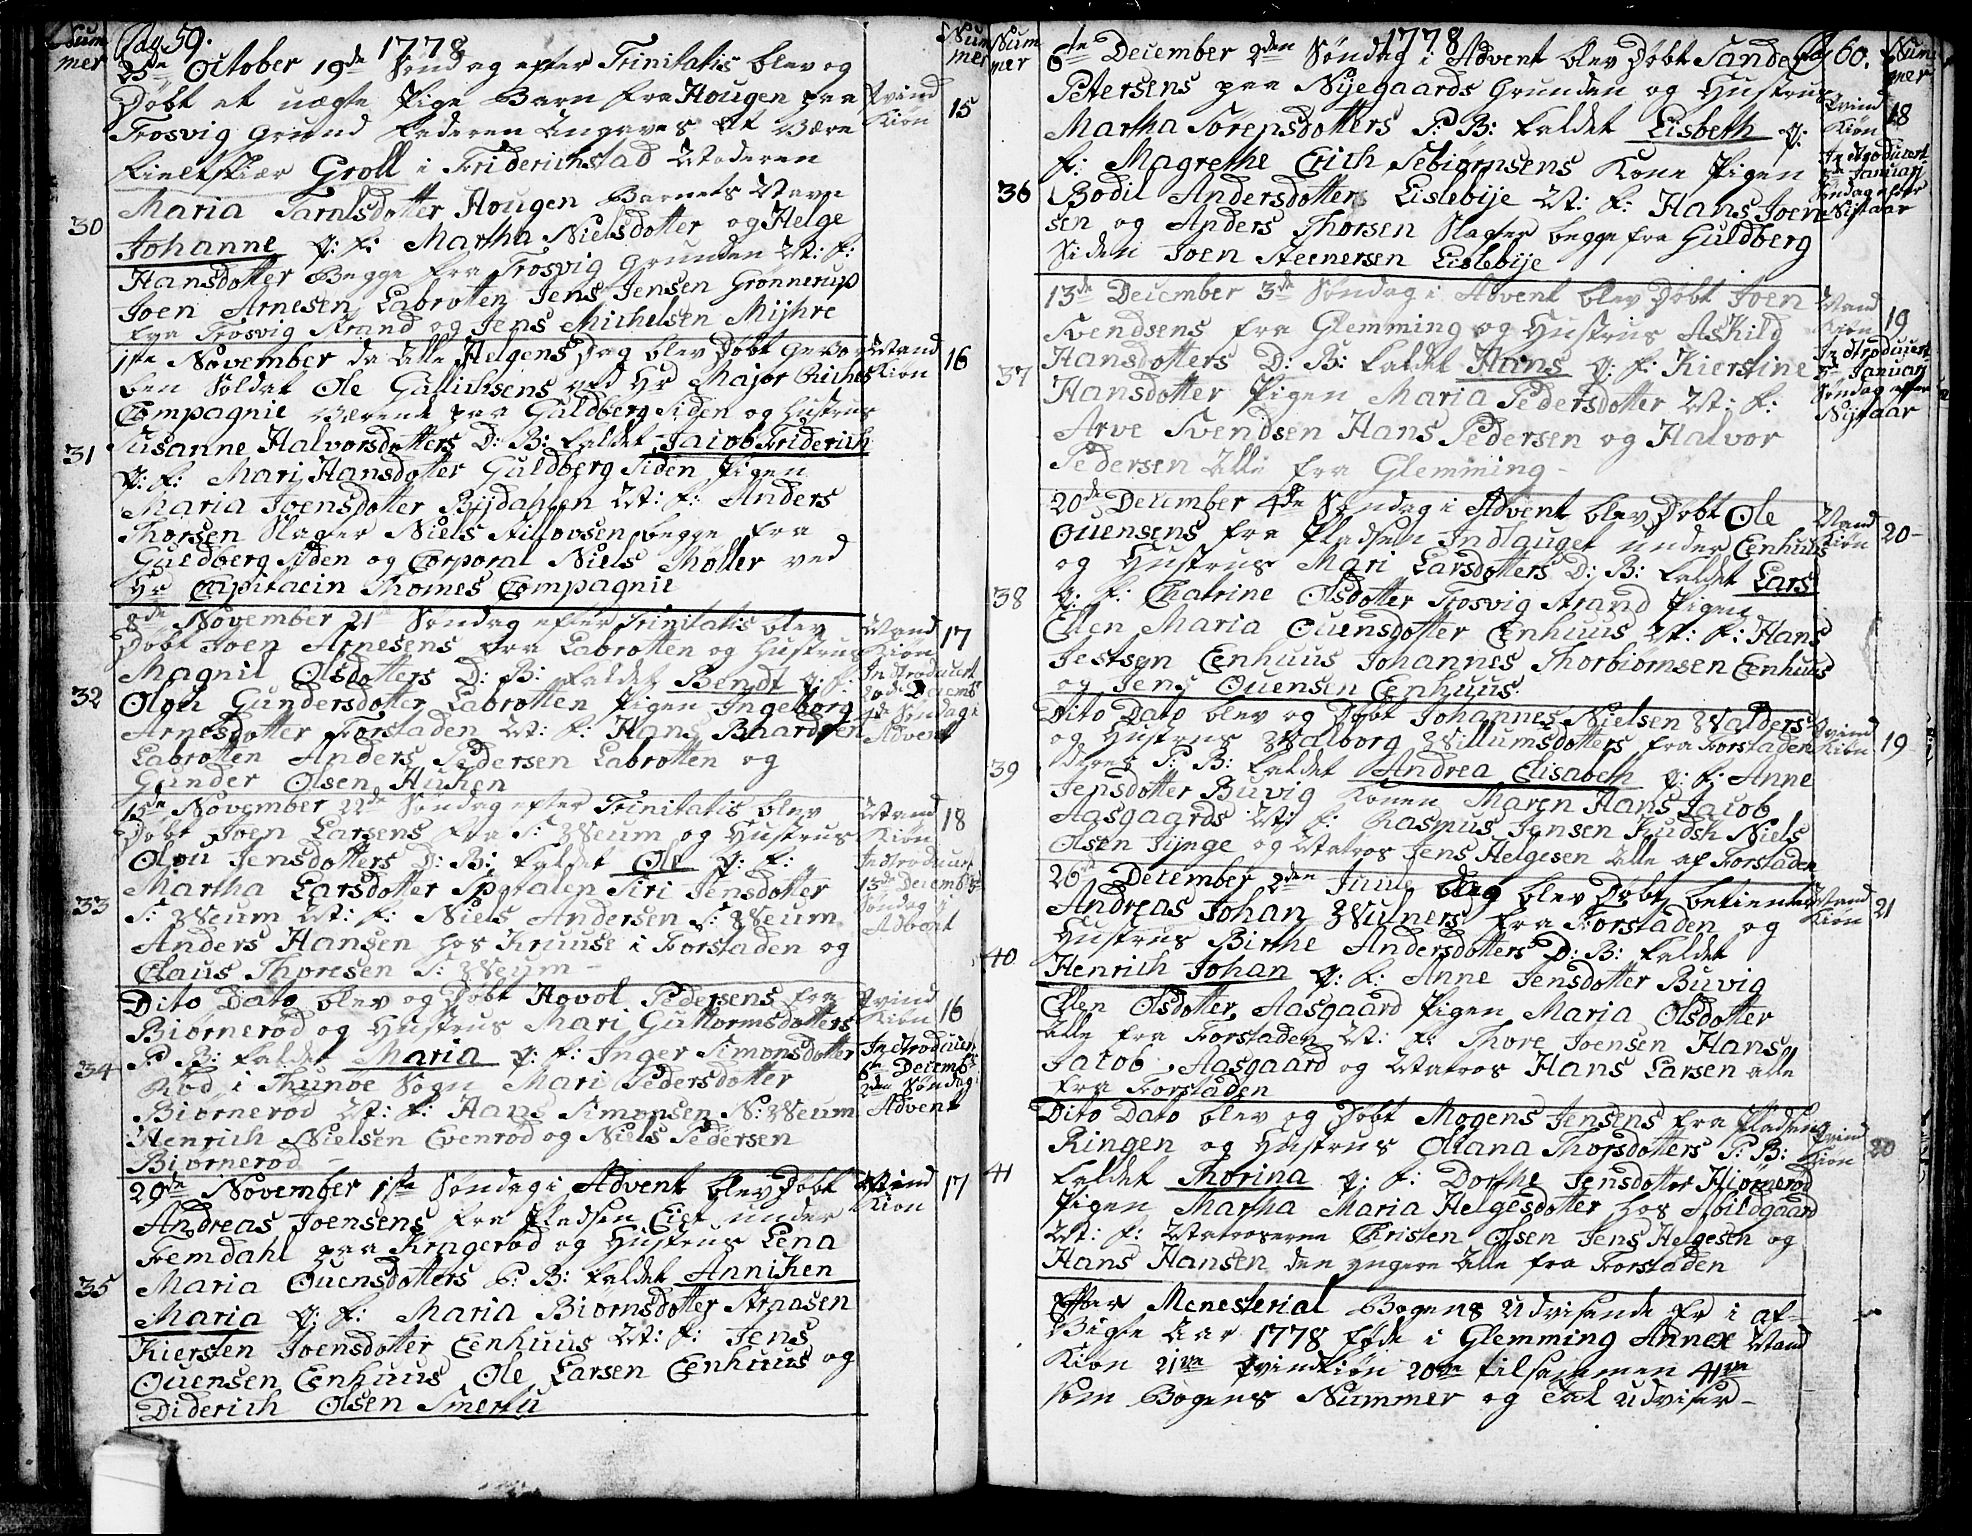 Pag 59.
1778
Num
mer
25de October 19de Søndag efter Trinitatis blev og
Døbt et uægte Pige Barn fra Hougen paa
Trosvig Grund Faderen Angaves at være
Groll i Friderichstad Moderen
Maria Hougen Barnets Navn
30
Johanne q: f: Martha Nielsdotter og Helge
Hansdotter Begge fra Trosvig Grunden M: f:
Joen Arnesen Labrotten Jens Jensen Grønnerup
fra Trosvig Strand og Jens Michelsen Mijhre
Qvind
Kiøn
15
1ste November da Alle Helgens Dag blev Døbt Gevor
ben Soldat Ole Gullichsens ved Hr Major Riches
Compagnie værende paa Guldberg Siden og Hustrus
31
Susanne Halvorsdotters D: B: kaldet Jacob Friderich
q: f: Mari Hansdotter Guldberg Siden Pigen
Maria Joensdotter Bijdahlen M: f: Anders
Thorsen Slager Niels begge fra
Guldberg Siden og Corporal Niels Møller ved
Hr Capitaein Thomes Compagnie
Mand
Kiøn
16
8de November 21de Søndag efter Trinitatis blev
Døbt Joen Arnesens fra Labrotten og Hustrus
Magnil Olsdotters D: B: kaldet Bendt q: f:
32
Olou Gundersdotter Labrotten Pigen Ingeborg
Arnesdotter Forstaden M: f: Hans Baardsen
Labrotten Anders Pedersen Labrotten og
Gunder Olsen Huken
Mand
Kiøn
Introducert
20de Decemb
4de Søndag i
Advent
17
15de November 22de Søndag efter Trinitatis blev
Døbt Joen Larsens fra S: Weum og Hustrus
Olou Jensdotters D: B: kaldet Ole q: f:
Martha Larsdotter Spetalen Siri Jensdotter
33
S: Weum M: f: Niels Andersen S: Weum
Anders Hansen hos Kruuse i Forstaden og
Claus Thoresen S: Weum
Mand
Kiøn
Introducert
13de Decemb 3de
Søndag i
Advent
18
Dito Dato blev og Døbt Hovol Pedersens fra
Biørnerød og Hustrus Mari Guttormsdotters
P: B: kaldet Maria q: f: Inger Simonsdotter
34
Rød i Thunøe Sogn Mari Pedersdotter
Biørnerød M: f: Hans Simonsen N: Weum
Henrich Nielsen Evenrød og Niels Pedersen
Biørnerød
Qvind
Kiøn
Introducert
6te Decemb
2den Søndag i
Advent
16
29de November 1ste Søndag i Advent blev Døbt
Andreas Joensens fra Pladsen Eiet under
Fremdahl paa Kragerød og Hustrus Lena
Maria Ouensdotters P: B: kaldet Anniken
35
Maria q: f: Maria Biørnsdotter Straasen
Kiersten Joensdotter Eenhuus M: f: Jens
Ouensen Eenhuus Ole Larsen Eenhuus og
Diderich Olsen Smertu
Qvind
Kiøn
17
Num
mer
1778
Pag 60.
Num
mer
6te December 2den Søndag i Advent blev Døbt Sande
Petersens paa Nijegaards Grunden og Hustrus
Martha Sørensdotters P: B: kaldet Lisbeth q:
f: Magrethe Erich Sebiørnsens Kone Pigen
36
Bodil Andersdotters Lislebije M: f: Hans Joen
sen og Anders Thorsen Slager begge fra Guldberg
Siden Joen Steenersen Lislebije
Qvind
Kiøn
Introducert
Januarj
Søndag efter
Nijtaar
18
13de December 3de Søndag i Advent blev Døbt Joen
Svendsens fra Glemming og Hustrus Askild
Hansdotters D: B: kaldet Hans q: f: Kierstine
37
Hansdotter Pigen Maria Pedersdotter M: f:
Arve Svendsen Hans Pedersen og Halvor
Pedersen Alle fra Glemming
Mand
Kiøn
Introducert
Januarj
Søndag efter
Nijtaar
19
20de December 4de Søndag i Advent blev Døbt Ole
Ouensens fra Pladsen Indlauget under Eenhuus
og Hustrus Mari Larsdotters D: B: kaldet Lars
38
q: f: Chatrine Olsdotter Trosvig Strand Pigen
Ellen Maria Ouensdotter Eenhuus M: f: Hans
Jestsen Eenhuus Johannes Thorbiørnsen Eenhuus
og Jens Ouensen Eenhuus
Mand
Kiøn
20
Dito Dato blev og Døbt Johannes Nielsen Walders
og Hustrus Walborg Willumsdotters fra Forstaden
39
deres P: B: kaldet Andrea Elisabeth q: f: Anne
Jensdotter Buvig Konen Maren Hans Jacob
Aasgaards M: f: Rasmus Jensen Kudsk Niels
Olsen Tijnge og Matros Jens Helgesen Alle af Forstaden
Qvind
Kiøn
19
26de December 2den Juule Dag blev Døbt betienter
Andreas Johan Wulners fra Forstaden og
Hustrus Birthe Andersdotters D: B: kaldet
40
Henrich Johan q: f: Anne Jensdotter Buvig
Ellen Olsdotter Aasgaard Pigen Maria Olsdotter
Alle fra Forstaden M: f: Thore Joensen Hans
Jacob Aasgaard og Matros Hans Larsen alle
fra Forstaden
Mand
Kiøn
21
Dito Dato blev og Døbt Mogens Jensens fra Pladsen
Ringen og Hustrus Oliana Thorsdotters P: B:
41
kaldet Thorina q: f: Dorthe Jensdotter Hiørnerød
Pigen Martha Maria Helgesdotter hos Abildgaard
M: f: Matroserne Christen Olsen Jens Helgesen og
Hans Hansen den yngere Alle fra Forstaden
Qvind
Kiøn
20
Efter Menesterial Bogens Udvisende Er i af
Vigte Aar 1778 føde i Glemming Annex Mand
Kiøn 21ve Qvindkiøn 20ve tilsammen 41ve
som Bogens Nummer og Tal udviser